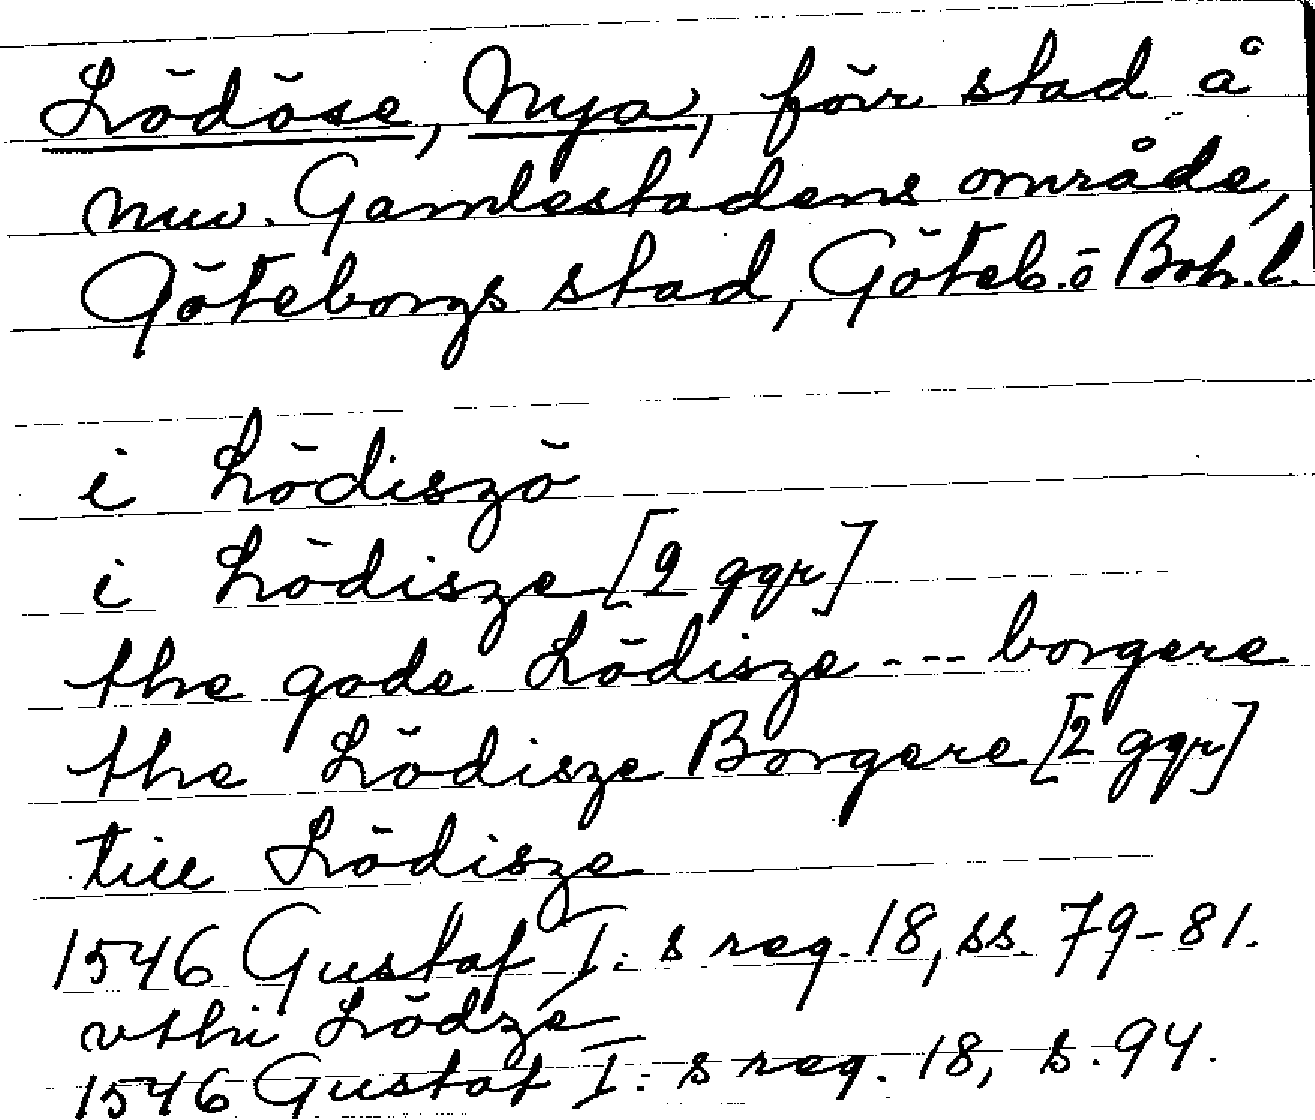 Lödöse, Nya, förr stad å
nuv. Gamlestadens område,
Göteborgs stad, Göteb. o Boh. l.
i Lödiszö
i Lödisze [2 ggr]
the gode Lödisze --- borgere
the Lödisze Borgere [2 ggr]
till Lödisze
1546 Gustaf I:s reg. 18, ss. 79-81.
vthi Lödze
1546 Gustaf I:s reg. 18, s. 94.